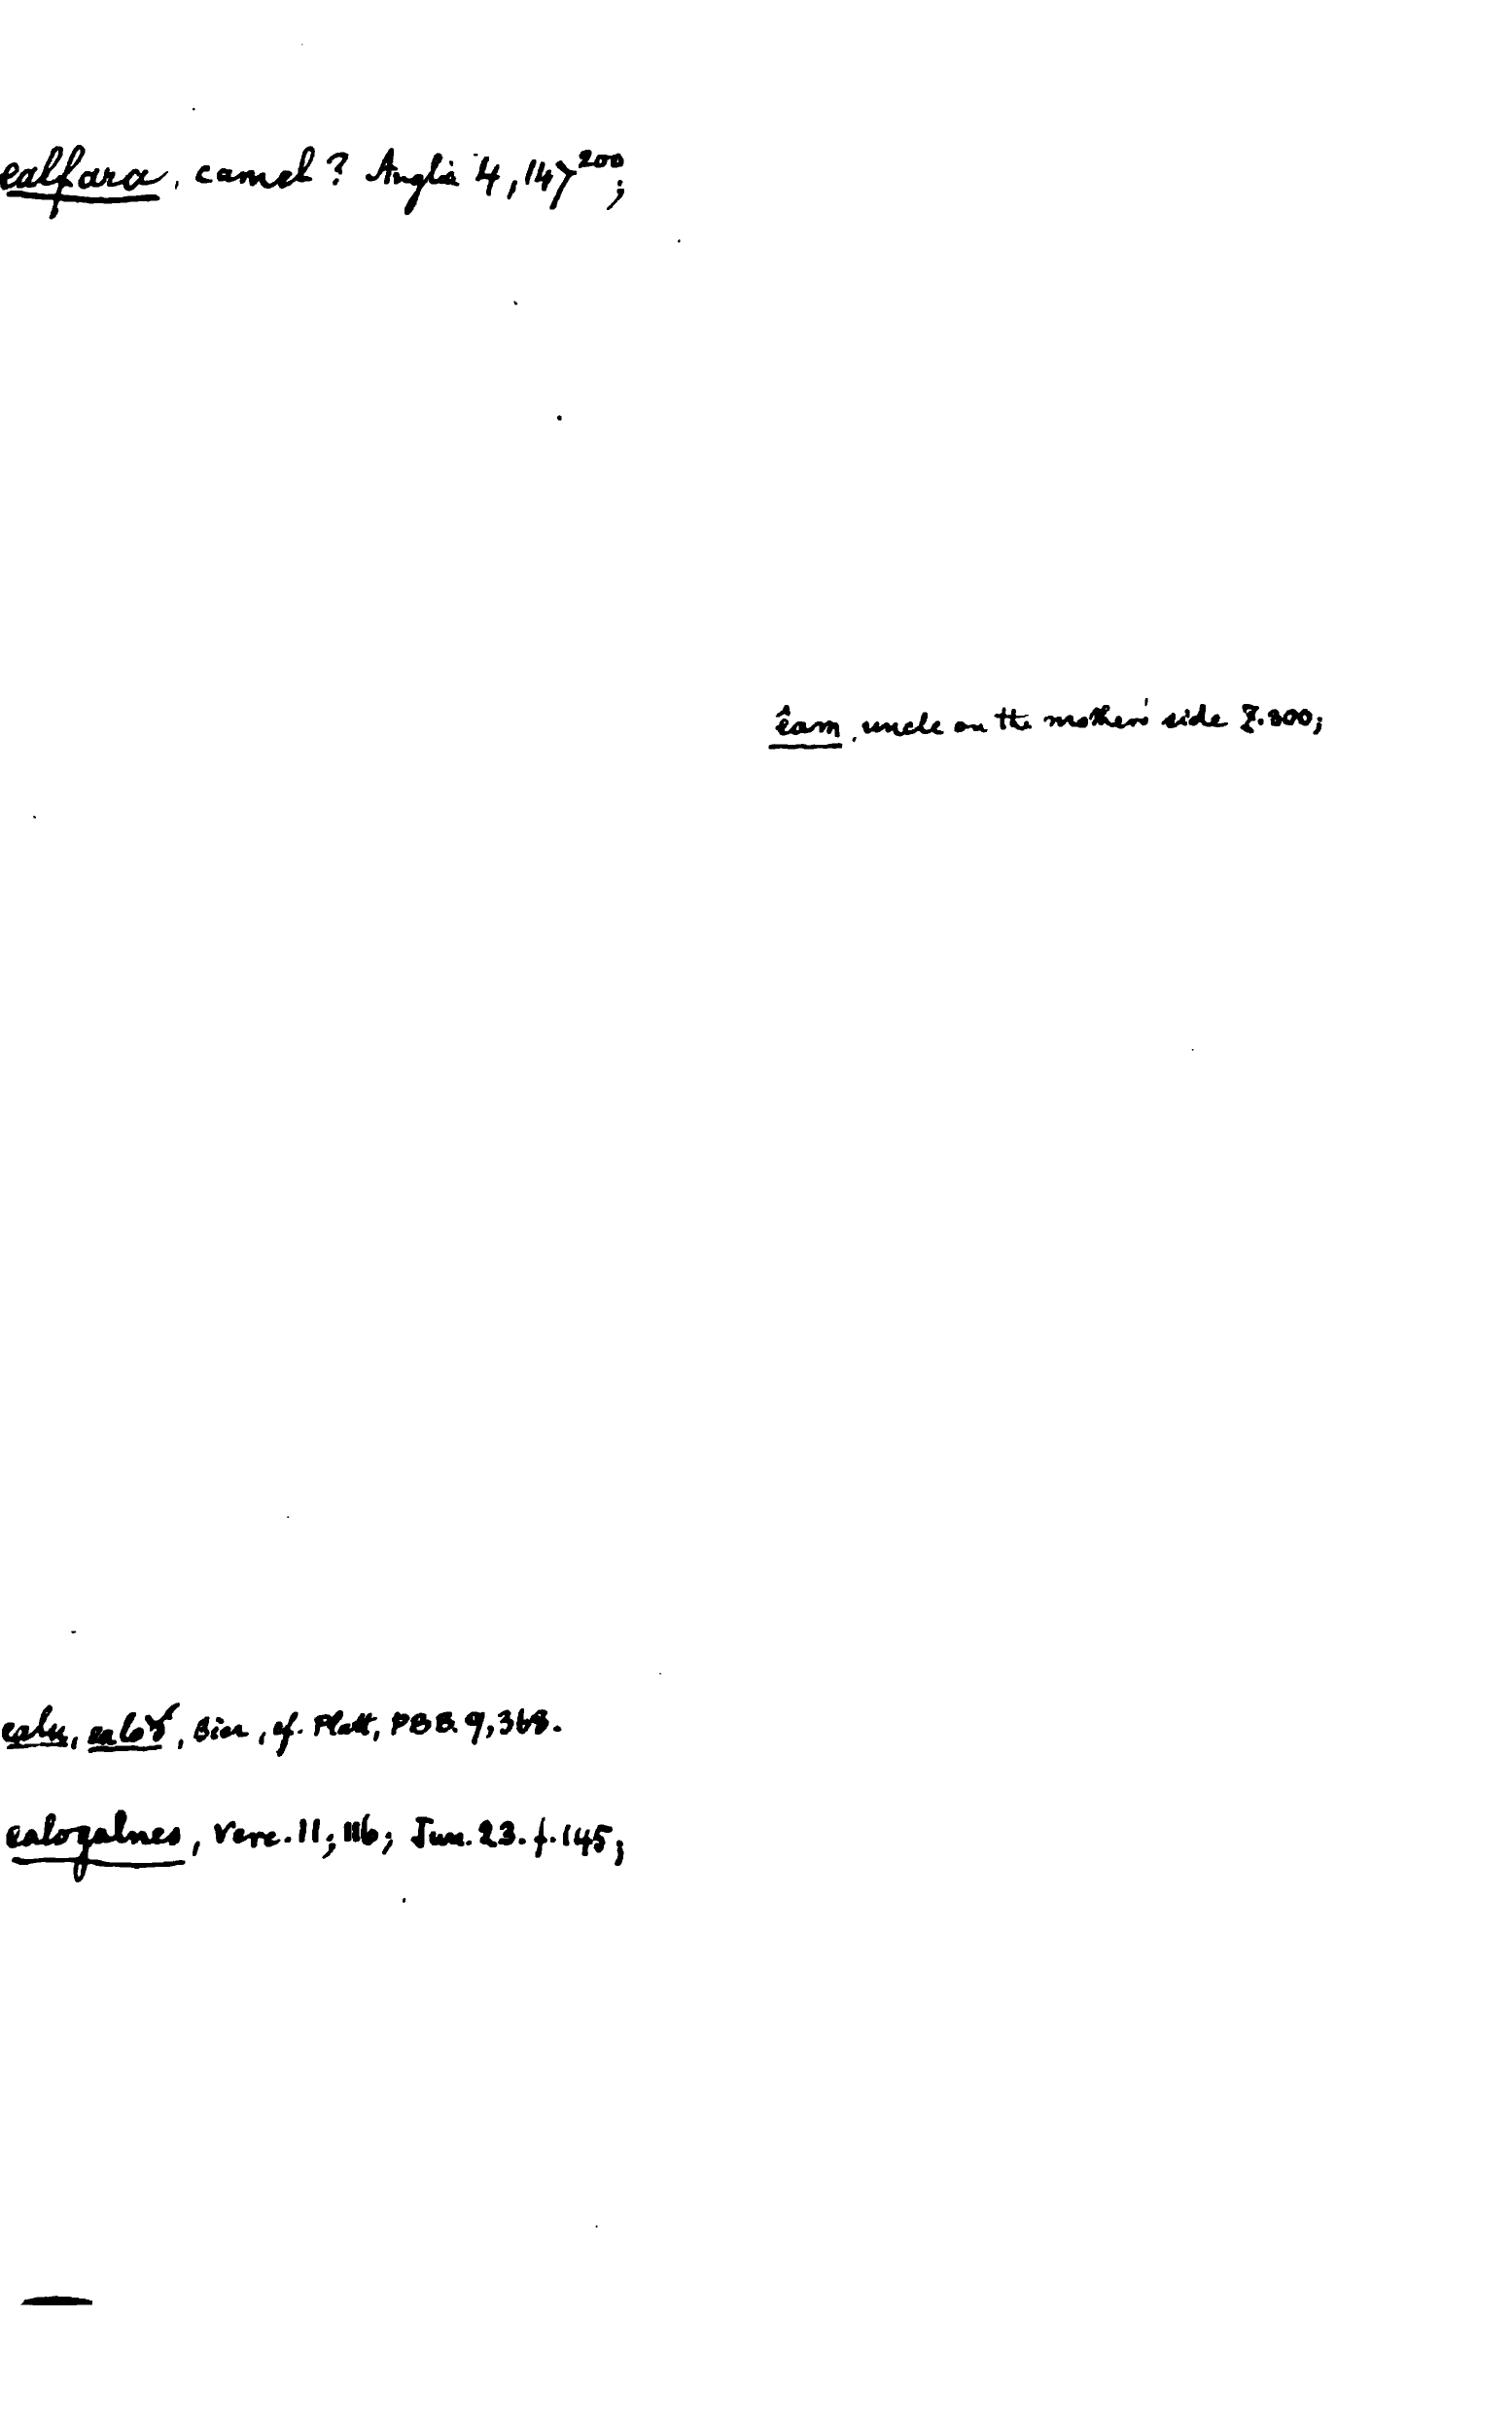 ealfara, camel? Anglia 4, 147²⁰⁰;
êam, uncle on the mother's side Z. 300;
ealu, ealoð, Bier, cf. Platt, PBB. 9, 368.
ealogalnes, Verc. 11; 116; Jun. 23. f. 145;